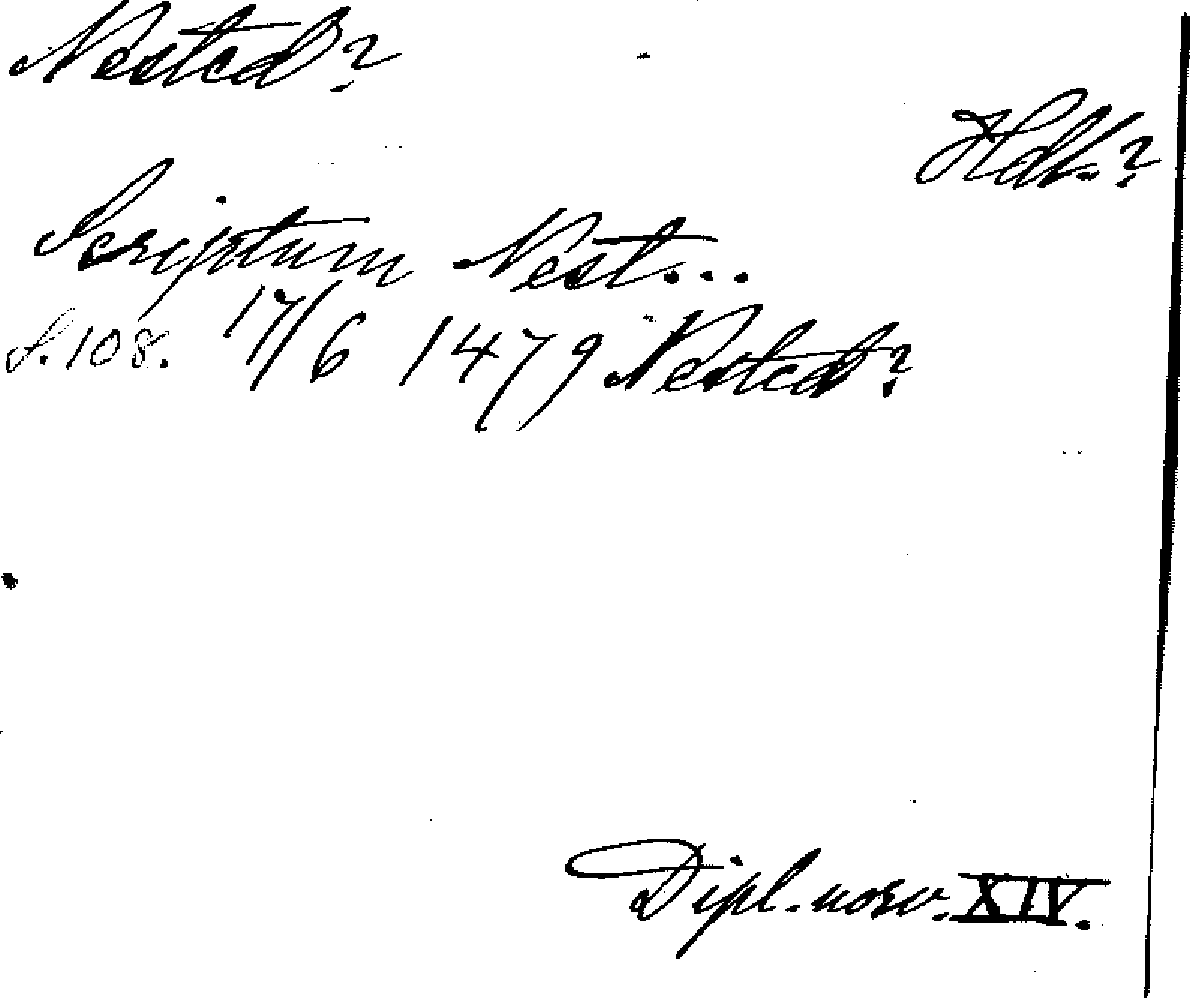 Nested?
Hdl.?
Scriptum Nest...
S. 108. 17/6 1479 Nested?
Dipl. norv. XIV.